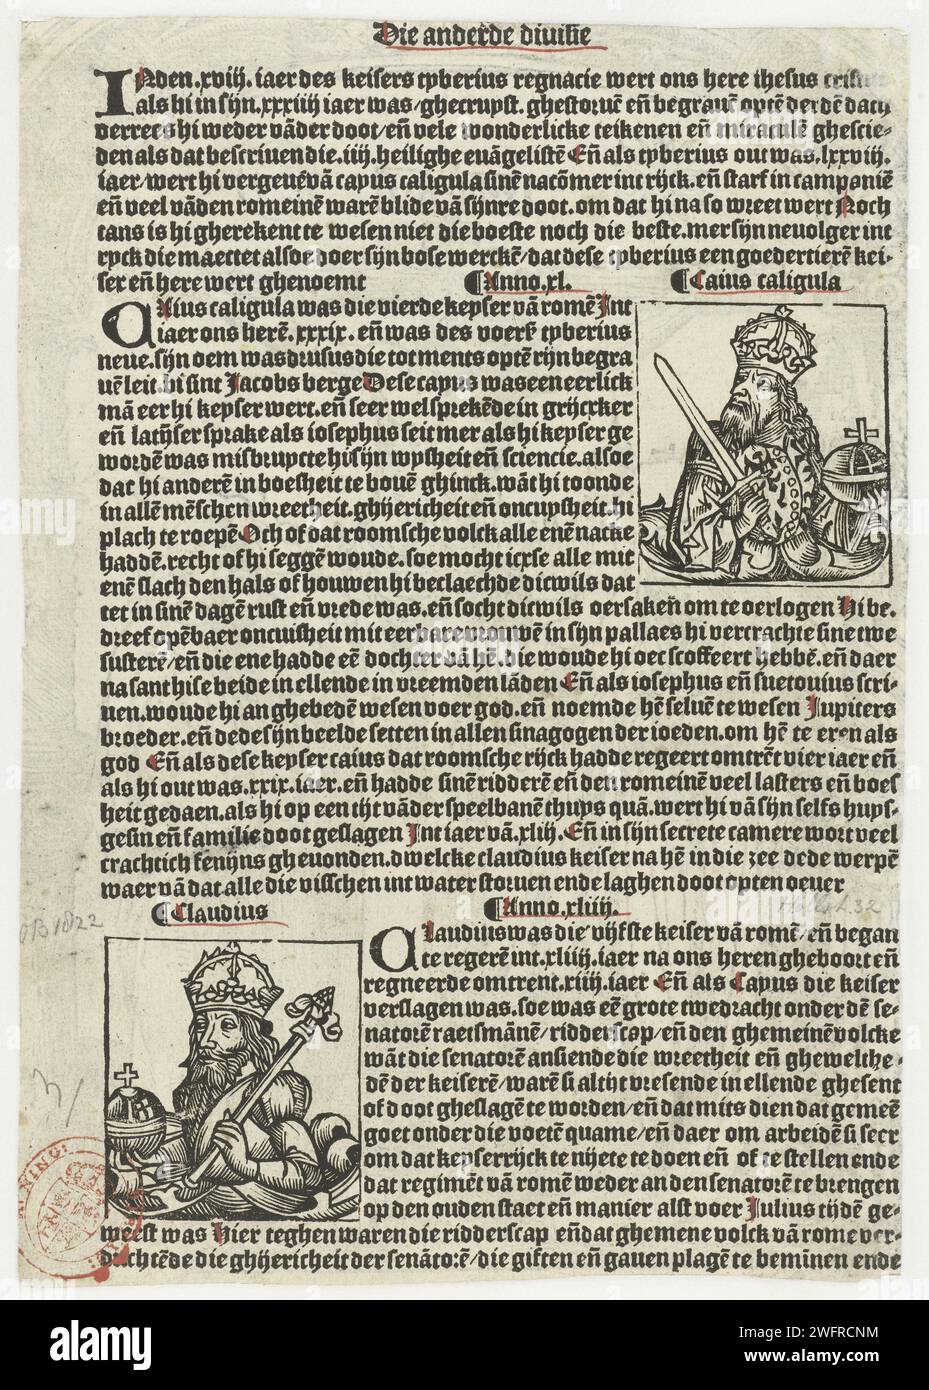 Die anderde divisie
INden.xviij.iaer des keisers tyberius regnacie wert ons here ihesus
als hi in sijn.xxxiiij iaer was/ghecruyst.ghestoruē eñ begrauē optē derdē dach
verrees hi weder vāder doot/eñ vele wonderlicke teikenen eñ miraculē ghescie-
den als dat bescriuen die.iiij.heilighe euāgelistē Eñ als tyberius out was.lxxviij.
iaer/wert hi vergeuē vā cayus caligula sinē nacōmer int rijck.eñ starf in campaniē
eñ veel vāden romeinē warē blide vā sijnre doot.om dat hi na so wreet wert Noch
tans is hi gherekent te wesen niet die boeste noch die beste.mer sijn neuolger int
ryck die maectet alsoe doer sijn bose werckē/dat dese tyberius een goedertierē kei-
ser eñ here wert ghenoemt ¶Anno.xl. ¶Caius caligula
CAius caligula was die vierde keyser vā romē Int
iaer ons herē.xxxix.eñ was des voers̄ tyberius
neue.sijn oem was drusus die tot ments optē rijn begra
uē leit.bi sint Jacobs berge Dese cayus was een eerlick
mā eer hi keyser wert.eñ seer wel sprekēde in grijcxker
eñ latijser sprake als iosephus seit mer als hi keyser ge
wordē was misbruycte hi sijn wysheit eñ sciencie.alsoe
dat hi anderē in boesheit te bouē ghinck.wāt hi toonde
in allē mēschen wreetheit.ghijericheit eñ oncuysheit.hi
plach te roepē Och of dat roomsche volck alle enē necke
haddē.recht of hi seggē woude.soe mocht icxse alle mit
enē slach den hals of houwen hi beclaechde dicwils dat
tet in sinē dagē rust eñ vrede was.eñ socht dicwils oersakeñ om te oerlogen Hi be.
dreef opēbaer oncuisheit mit eerbare vrouwē in sijn pallaes hi vercrachte sine twe
susterē/eñ die ene hadde eē dochter vā hē.die woude hi oec scoffeert hebbē.eñ daer
na sant hise beide in ellende in vreemden lāden Eñ als iosephus eñ suetonius scri-
uen.woude hi an ghebedē wesen voer god.eñ noemde hē seluē te wesen Jupiters
broeder.eñ dede sijn beelde setten in allen sinagogen der ioeden.om hē te eren als
god Eñ als dese keyser caius dat roomsche rijck hadde regeert omtrēt vier iaer eñ
als hi out was.xxix.iaer.eñ hadde sinē ridderē eñ den romeinē veel lasters eñ boes
heit gedaen.als hi op een tijt vāder speelbanē thuys quā.wert hi vā sijn selfs huys-
gesin eñ familie doot geslagen Int iaer vā.xliij.Eñ in sijn secrete camere wort veel
crachtich fenijns gheuonden.dwelcke claudius keiser na hē in die zee dede werpē
waer vā dat alle die visschen int water storuen ende laghen doot opten oeuer
¶Claudius ¶Anno.xliiij.
CLaudius was die vijfste keiser vā romē/eñ began
te regerē int.xliiij.iaer na ons heren gheboort eñ
regneerde omtrent.xiiij.iaer Eñ als Cayus die keiser
verslagen was.soe was eē grote twedracht onder dē se-
natorē raetsmānē/ridderscap/eñ den ghemeinē volcke
wāt die senatorē ansiende die wreetheit eñ ghewelthe-
dē der keiserē/warē si altijt vresende in ellende ghesent
of doot gheslagē te worden/eñ dat mits dien dat gemeē
goet onder die voetē quame/eñ daer om arbeidē si seer
om dat keyserrijck te nijete te doen eñ of te stellen ende
dat regimēt vā romē weder an den senatorē te brengen
op den ouden staet eñ manier alst voer Julius tijdē ge-
weest was Hier teghen waren die ridderscap eñ dat ghemene volck vā rome ver-
duchtēde die ghijericheit der senāto:ē/die giften eñ gauen plagē te beminen ende
OB 1822
alamy
Image ID: 2WFRCNM
www.alamy.com